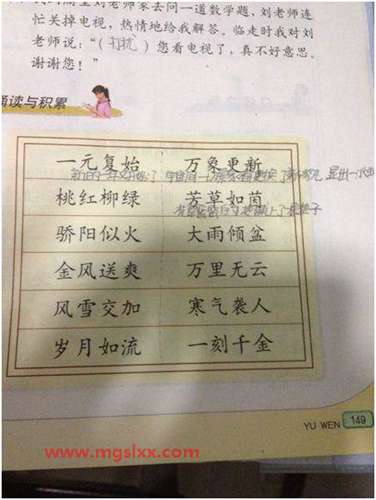 刘老师家去问一道数学题，刘老师连
忙关掉电视，热情地给我解答。临走时我对刘
老师说：“（打扰）您看电视了，真不好意思。
谢谢您！”
诵读与积累
一元复始 万象更新
桃红柳绿 芳草如茵
骄阳似火 大雨倾盆
金风送爽 万里无云
风雪交加 寒气袭人
岁月如流 一刻千金
YU WEN 149
www.mgslxx.com